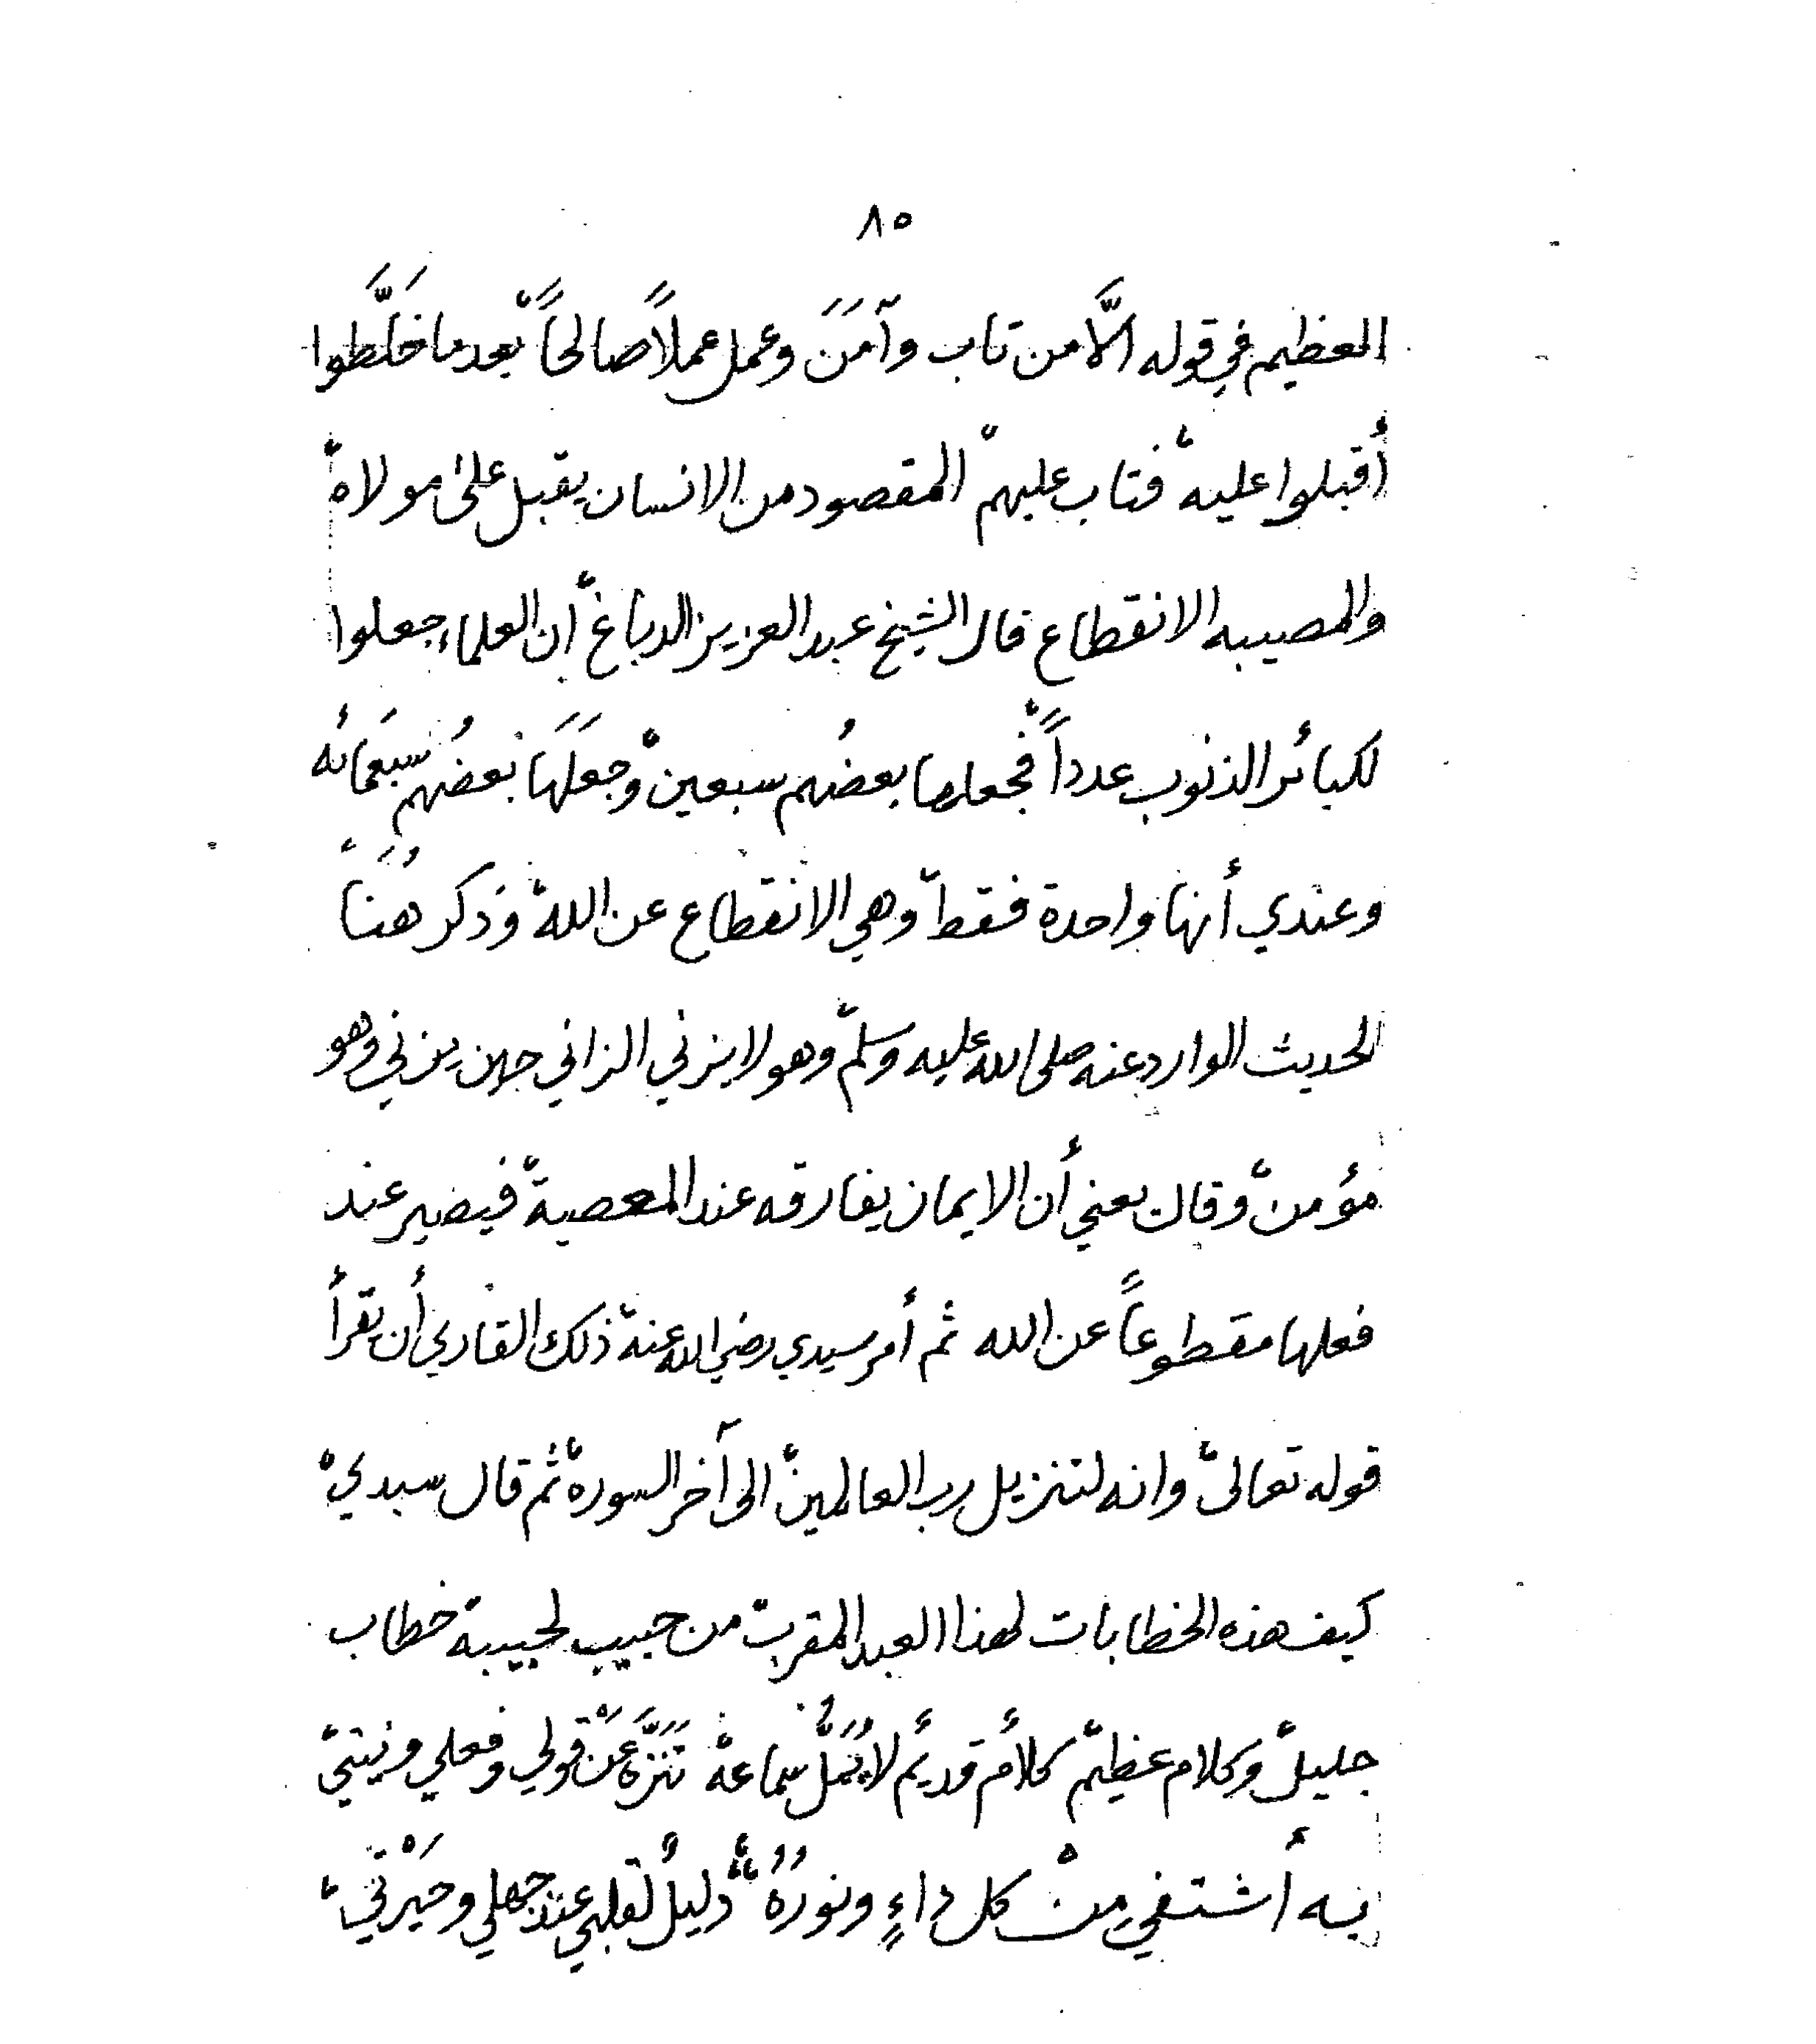 ٨٥
العظيم في قوله الَّا من تاب وآمَنَ وعمل عملاً صالحاً، بعد ما خَلَّطوا
أقبلوا عليه، فتاب عليهم، المقصود من الانسان يقبل على مولاه،
والمصيبه الانقطاع قال الشيخ عبد العزيز الدباغ، أن العلماء جعلوا
لكبائر الذنوب عدداً، فجعلها بعضُهم سبعين، وجعَلَها بعضُهم سبعَمائه
وعندي أنها واحدة فقط، وهي الانقطاع عن الله، وذكر هُنَا
الحديث الوارد عنه صلى الله عليه وسلم، وهو لا يزني الزاني حين يزني وهو
مؤمن، وقال يعني أن الايمان يفارقه عند المعصية، فيصير عند
فعلها مقطوعاً عن الله ثم أمر سيدي رضي الله عنه ذلك القاري أن يقرأ
قوله تعالى، وانه لتنزيل رب العالمين، الى آخر السوره، ثم قال سيدي،
كيف هذه الخطابات لهذا العبد المقرب، من حبيب لحبيبه، خطاب
جليل، وكلام عظيم، كلامٌ قديمٌ لا يُمَلُّ سماعه، تَنَزَّهَ عَنْ قولي وفعلي ونيتي،
به أشتفي مِنْ كل داءٍ ونورُهُ، دليلٌ لقلبي عند جهلي وحَيْرتي،